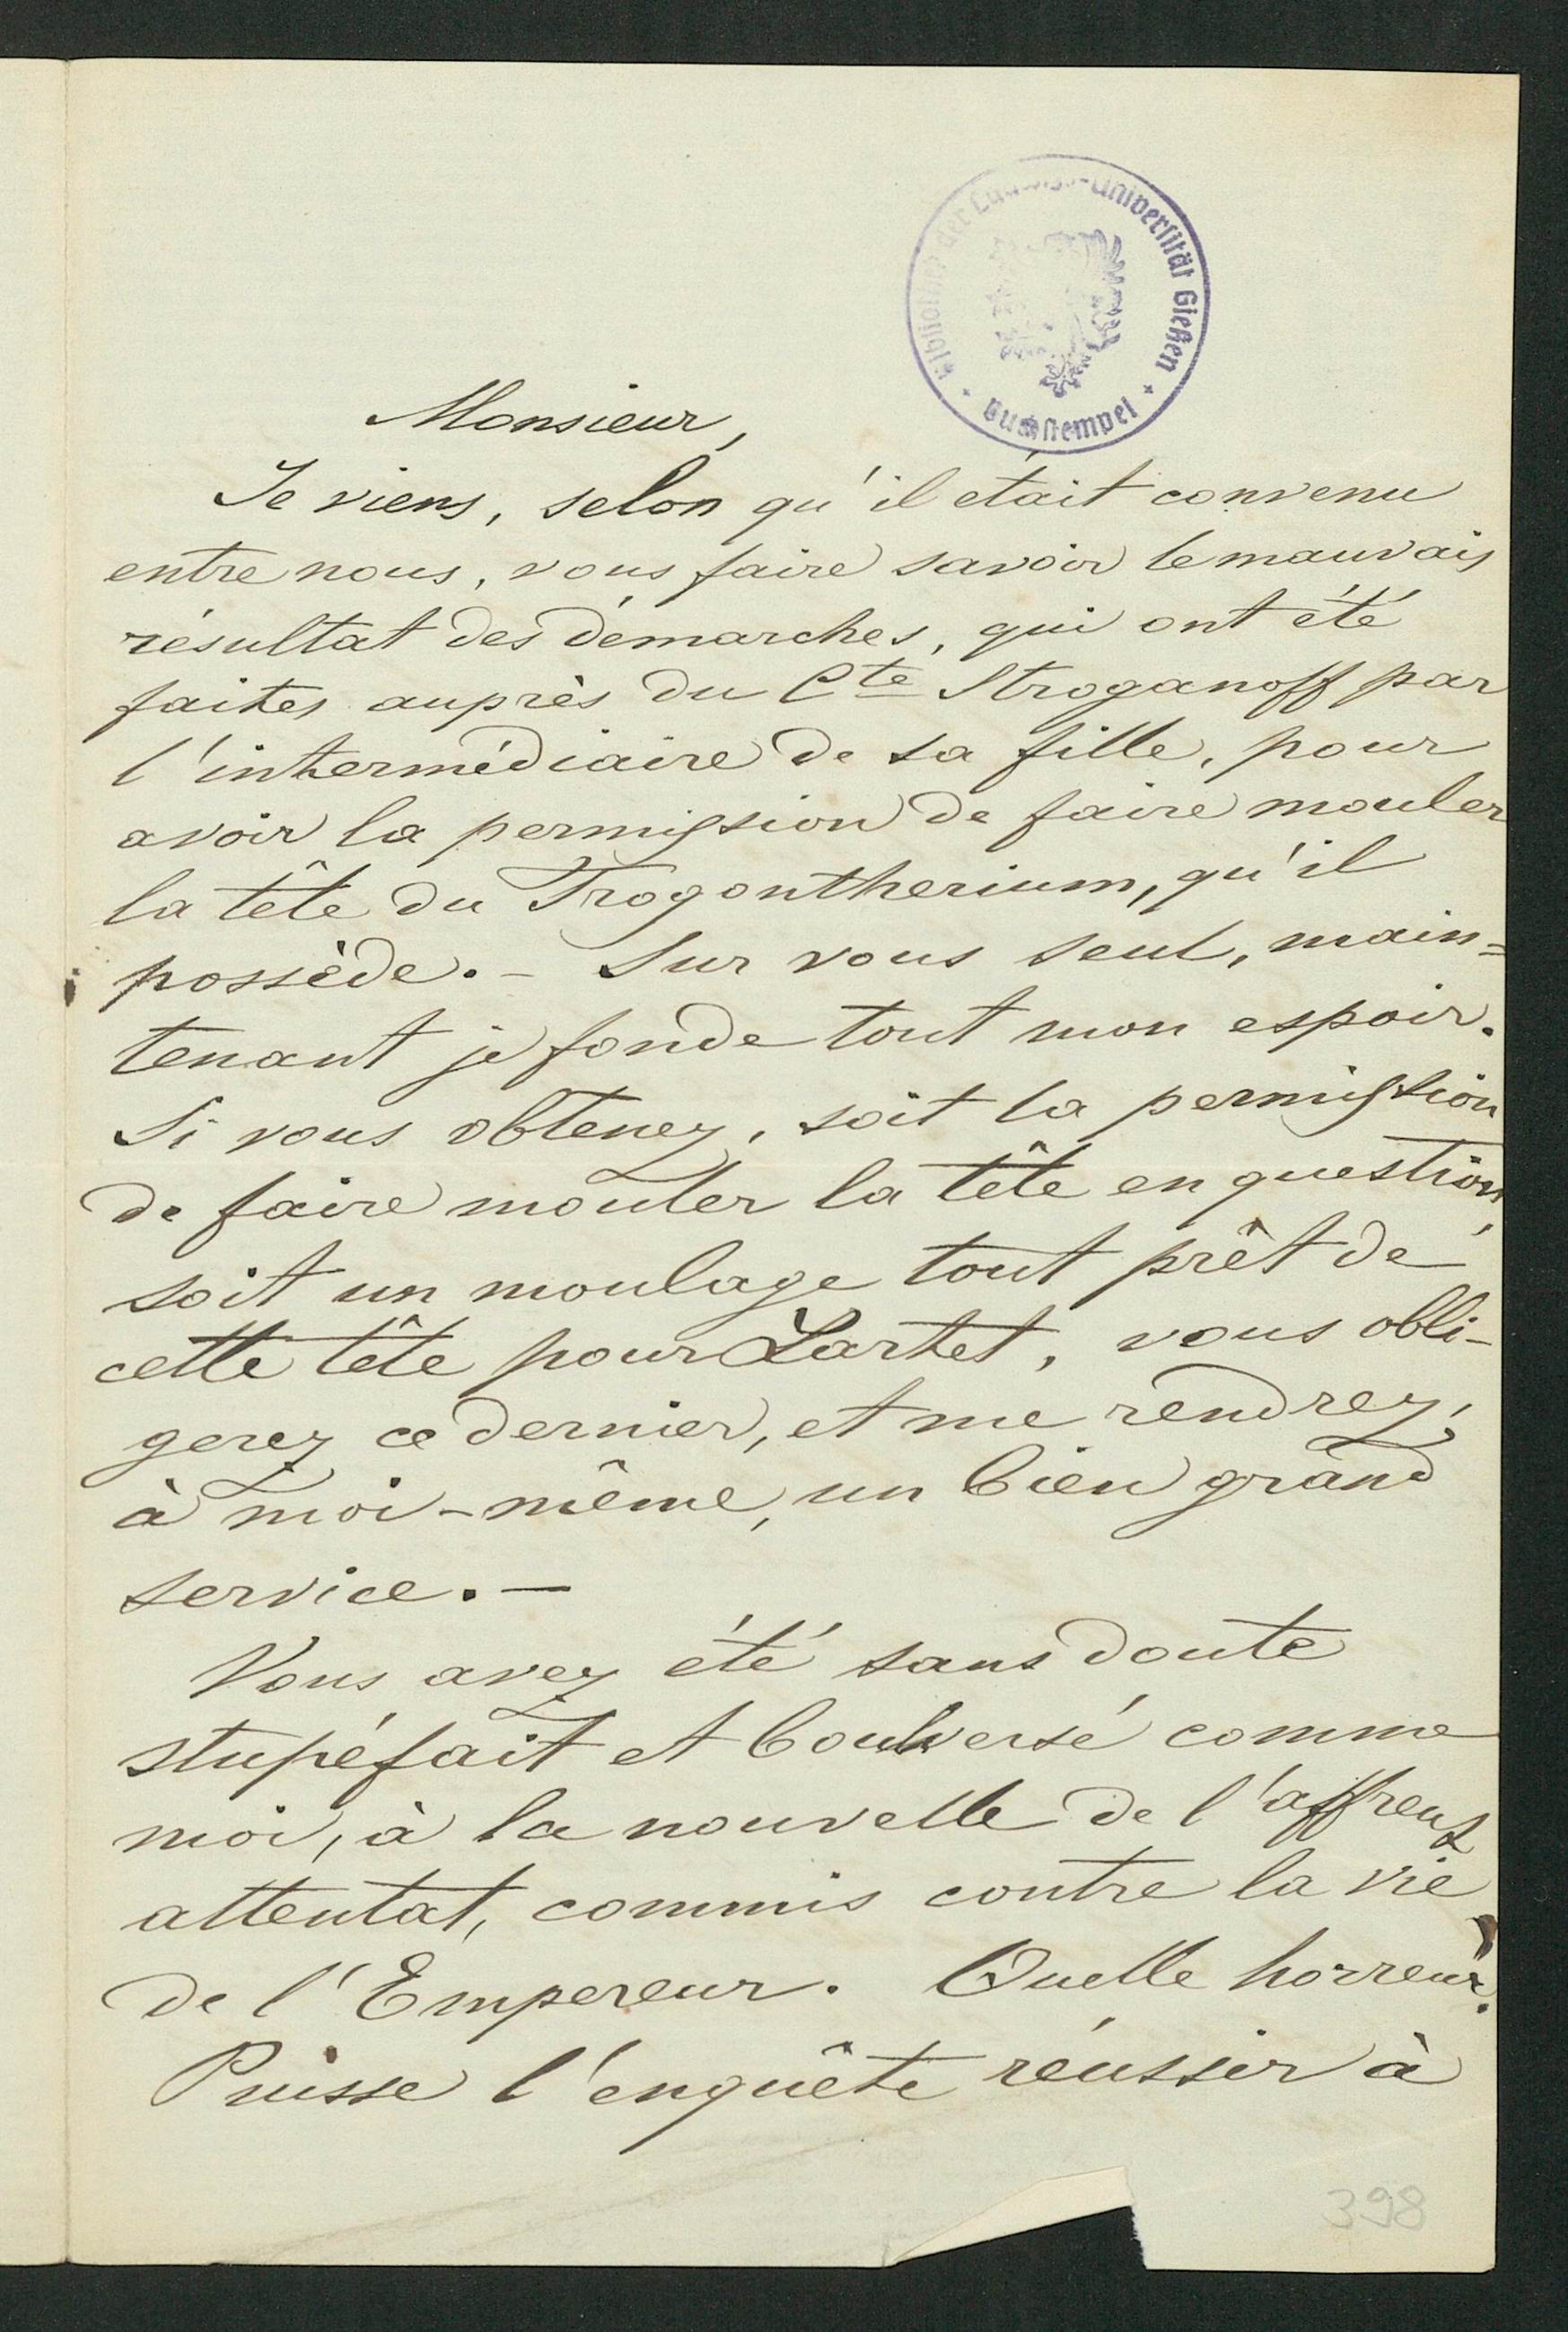 Bibliothek der Ludwigs-Universität Gießen
Buchstempel
Monsieur,
Je viens, selon qu'il était convenu
entre nous, vous faire savoir le mauvais
résultat des démarches, qui ont été
faites auprès du Cte Stroganoff par
l'intermédiaire de sa fille, pour
avoir la permission de faire mouler
la tête du Trogontherium, qu'il
possède. - Sur vous seul, main=
tenant je fonde tout mon espoir.
Si vous obtenez, soit la permission
de faire mouler la tête en question,
soit un moulage tout prêt de
cette tête pour Lartet, vous obli-
gerez ce dernier, et me rendrez,
à moi-même, un bien grand
service. —
Vous avez été sans doute
stupéfait et boulversé comme
moi, à la nouvelle de l'affreux
attentat, commis contre la vie
de l'Empereur. Quelle horreur!
Puisse l'enquête réussir à
398